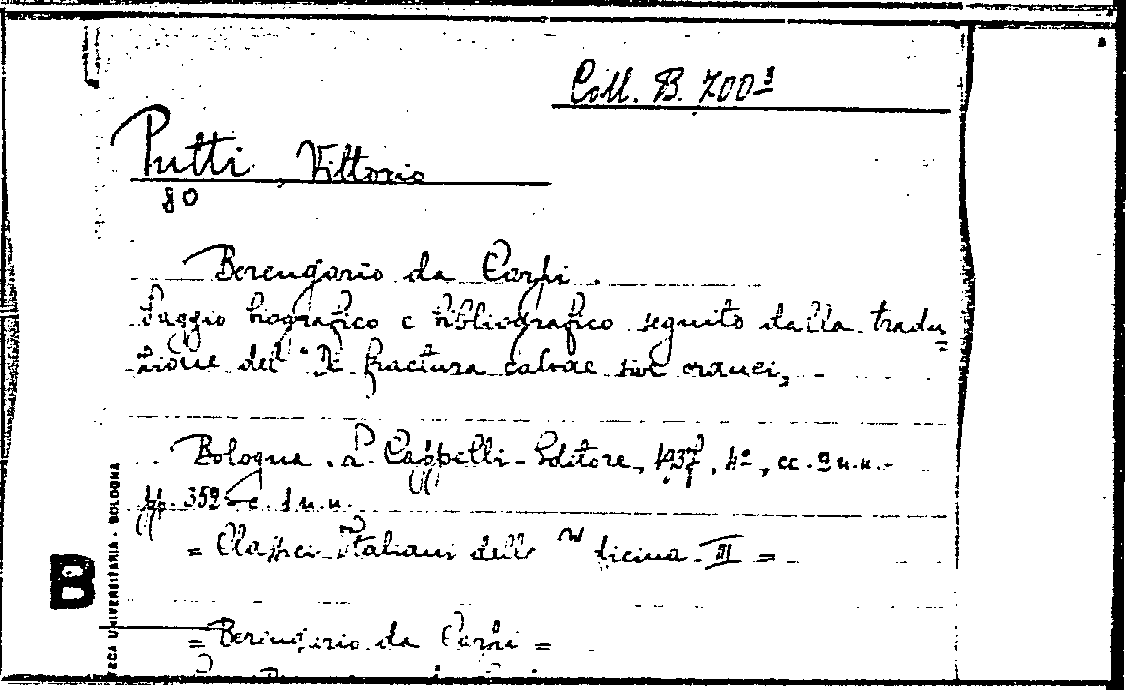 Coll. B. 700³
Putti, Vittorio
80
Berengario da Carpi.
Saggio biografico e bibliografico seguito dalla tradu
zione del "De fractura calvae sive cranei,,
Bologna. L. Cappelli-Editore, 1937, 4º, cc. 2 n.n.-
pp. 352-c. 1 n.n.
= Classici Italiani della Medicina-III =
B
TECA UNIVERSITARIA - BOLOGNA
= Berengario da Carpi =